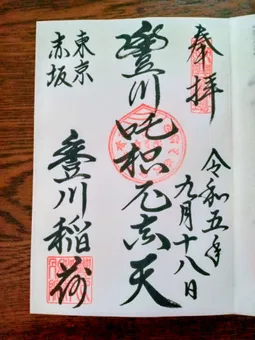 奉拝
令和五年
九月十八日
豐川吒枳尼真天
東京
赤坂
豊川稲荷